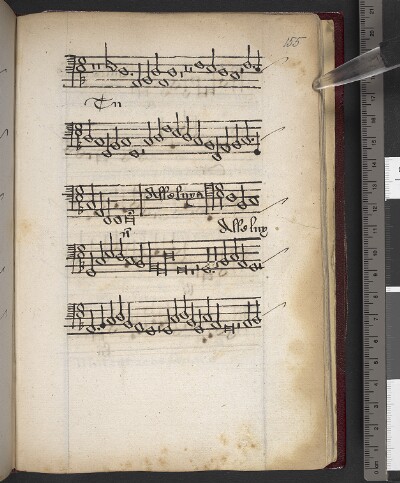 155
In
Alleluya
Alleluy